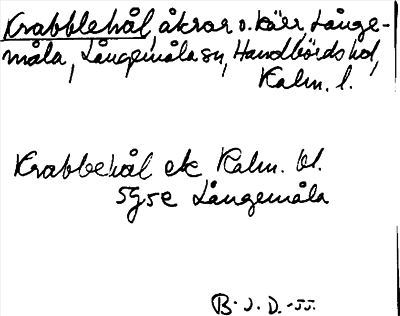 Krabblehål, åkrar o. kärr, Långe-
måla, Långemåla sn, Handbörds hd,
Kalm. l.
Krabbehål ek Kalm. bl.
5G5e Långemåla
B.J.D.-55.